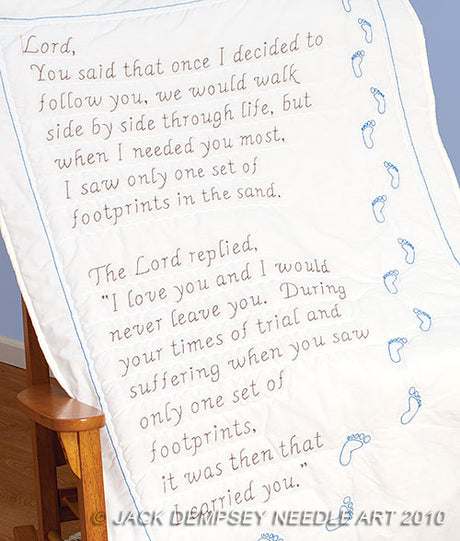 Lord,
You said that once I decided to
follow you, we would walk
side by side through life, but
when I needed you most,
I saw only one set of
footprints in the sand.
The Lord replied,
"I love you and I would
never leave you. During
your times of trial and
suffering when you saw
only one set of
footprints,
it was then that
I carried you."
© JACK DEMPSEY NEEDLE ART 2010